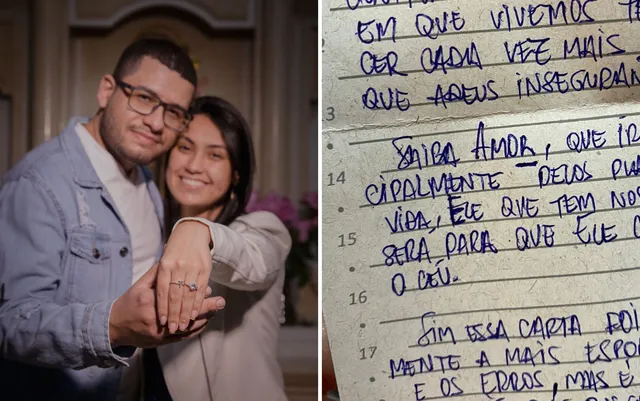 EM QUE VIVEMOS
CER CADA VEZ MAIS
QUE AQEUS INSEGURAN
3
SAIBA AMOR, QUE IR
14
CIPALMENTE DELOS PLA
VIDA, ELE QUE TEM NOS
15
SERÁ PARA QUE ELE
O CÉU.
16
SIM ESSA CARTA FOI
17
MENTE A MAIS ESPO
E OS ERROS, MAS É